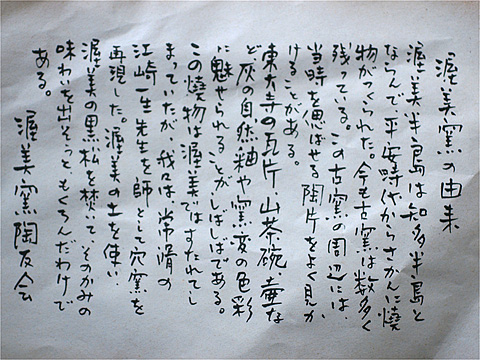 渥美窯の由来
渥美半島は知多半島と
ならんで、平安時代からさかんに焼
物がつくられた。今も古窯は数多く
残っている。この古窯の周辺には、
当時を偲ばせる陶片をよく見か
けることがある。
東大寺の瓦片、山茶碗、壷な
ど、灰の自然釉や窯変の色彩
に魅せられることがしばしばである。
この焼物は渥美ではすたれてし
まっていたが、我々は、常滑の
江崎一生先生を師として穴窯を
再現した。渥美の土を使い、
渥美の黒松を焚いて、そのかみの
味わいを出そうと、もくろんだわけで
ある。
渥美窯陶友会